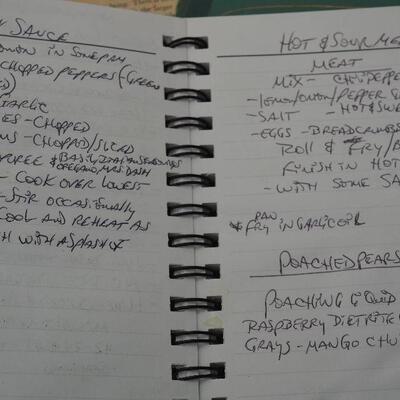 SAUCE
ONION IN SOME EVOO
CHOPPED PEPPERS (GREEN
GARLIC
- CHOPPED
- CHOPPED/SLICED
PUREE & BASIL, ITALIAN SEASONINGS
OREGANO, MRS. DASH
- COOK OVER LOWEST
- STIR OCCASIONALLY
COOL AND REHEAT AS
WITH A SPLASH OF
HOT & SOUR ME
MEAT
MIX - CHILI PEPPE
- LEMON/ONION/PEPPER &
- SALT - HOT & SWE
- EGGS - BREADCRUMBS
ROLL & FRY/B
FINISH IN HOT
- WITH SOME SA
* PAN FRY IN GARLIC OIL
POACHED PEARS
POACHING LIQUID
RASPBERRY DIET RITE
GRAYS - MANGO CHU